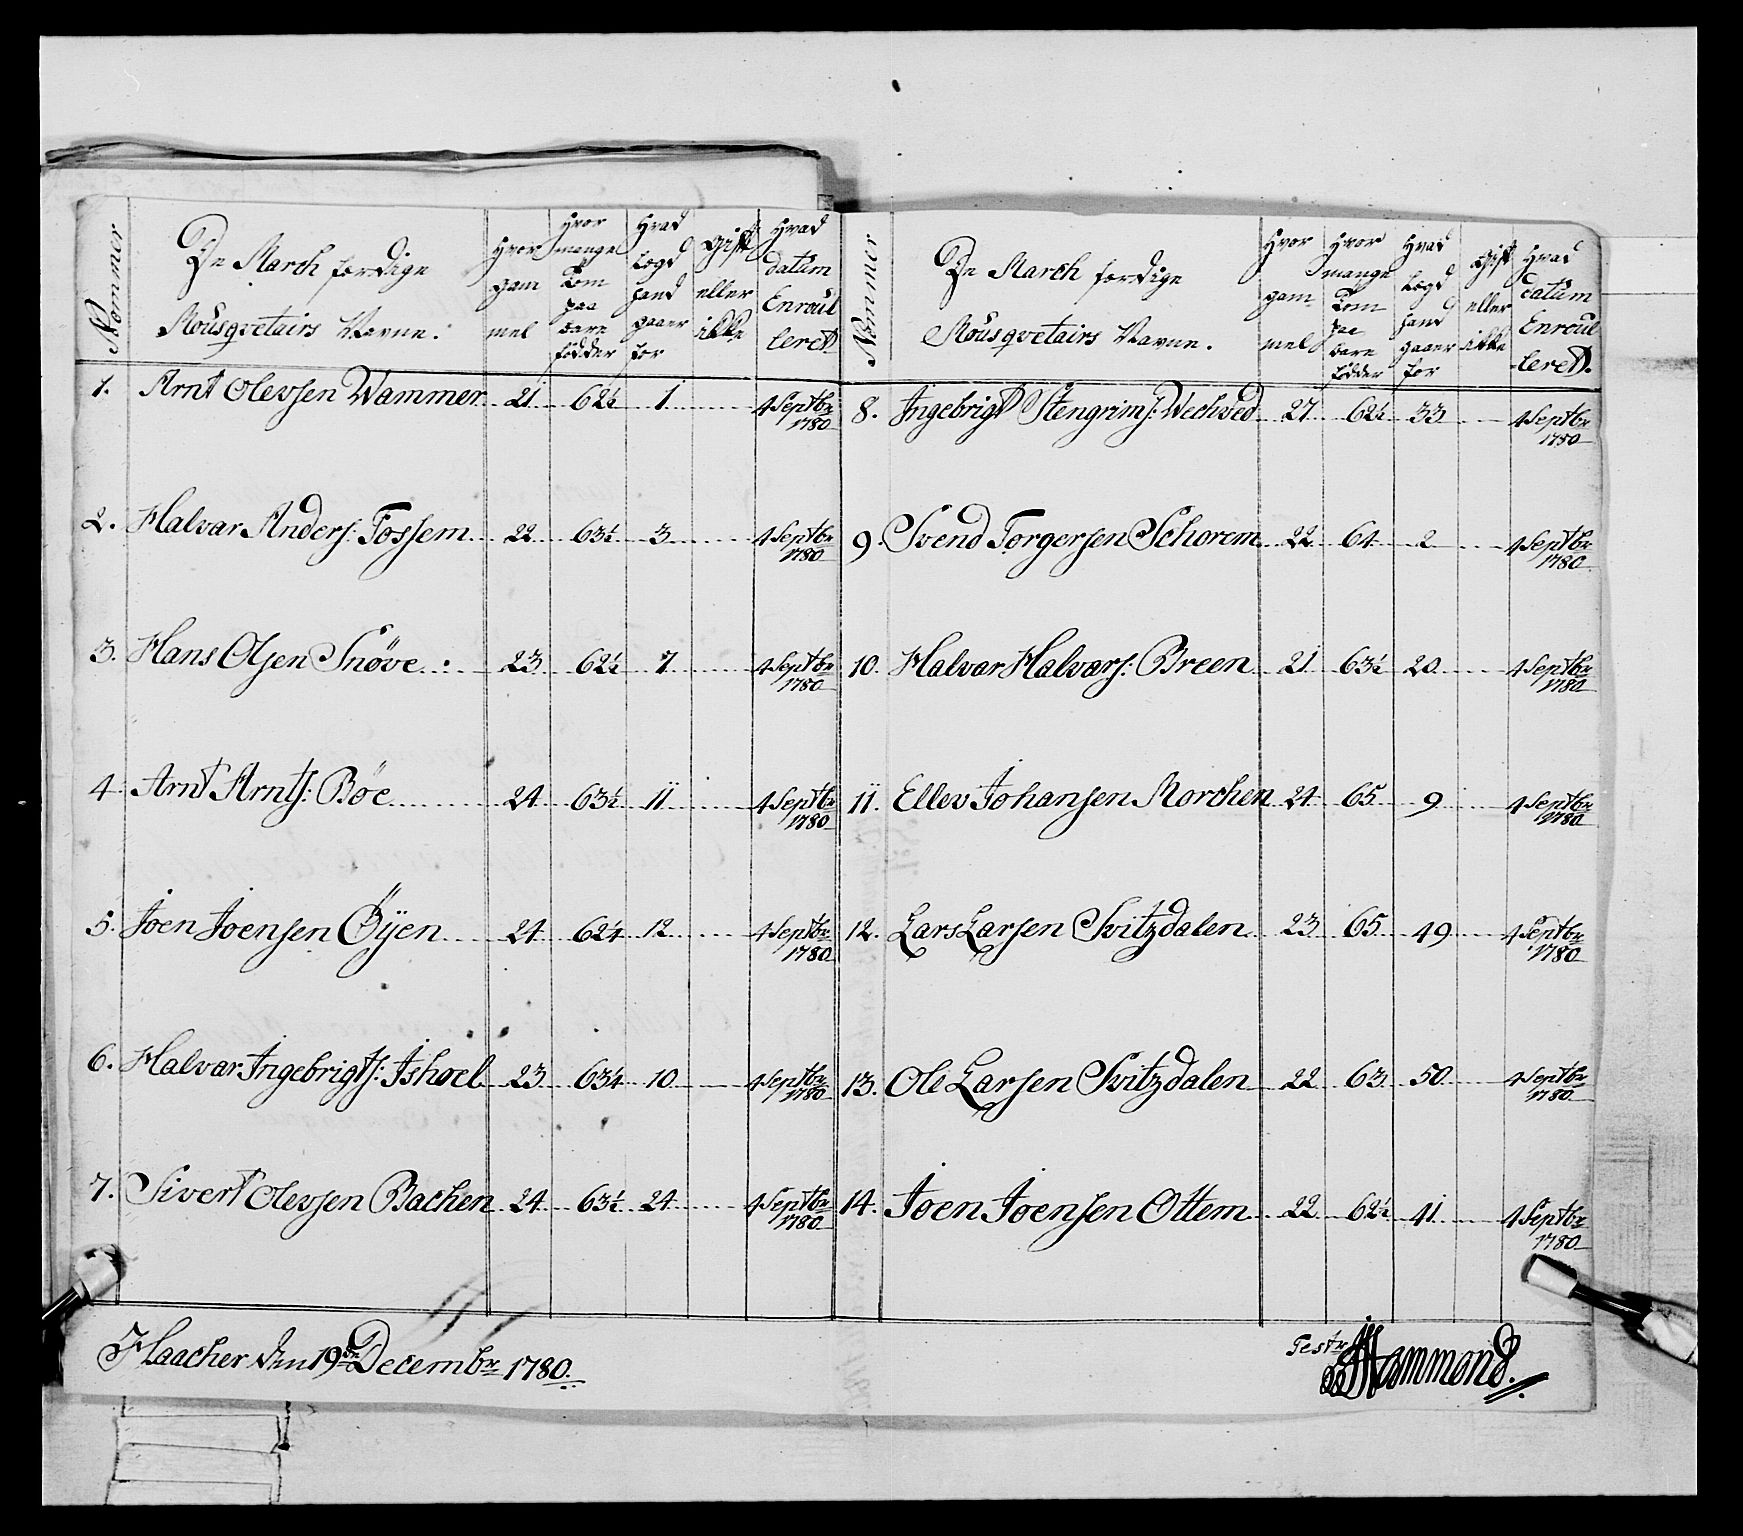 Nommer
De March færdige
Mousqvetairs Navne.
Hvor gam mel
Hvor mange Tom paa bare födder
Hvad Legd hand gaaer for
Gift eller ikke
Hvad datum Enroul leret
1. Arnt Olevsen Wammer 21 62½ 1 4 Septbr 1780
2. Halvar Anders: Fossem 22 63½ 3 4 Septbr 1780
3. Hans Olsen Snöve 23 62½ 7 4 Septbr 1780
4. Arnt Arnts: Böe 24 63½ 11 4 Septbr 1780
5. Joen Joensen Öÿen 24 62¼ 12 4 Septbr 1780
6. Halvar Ingebrigts: Ishoel 23 63¼ 10 4 Septbr 1780
7. Sivert Olevsen Bachen 24 63½ 24 4 Septbr 1780
Nommer
De March færdige
Mousqvetairs Navne.
Hvor gam mel
Hvor mange Tom paa bare födder
Hvad Legd hand gaaer for
Gift eller ikke
Hvad datum Enroul leret.
8. Ingebrigt Stengrims: Wechved 27 62½ 33 4 Septbr 1780
9. Svend Torgersen Schorem 22 64 2 4 Septbr 1780
10. Halvar Halvars: Breen 21 63½ 20 4 Septbr 1780
11. Ellev Johansen Morchen 24 65 9 4 Septbr 1780
12. Lars Larsen Svitzdalen 23 65 49 4 Septbr 1780
13. Ole Larsen Svitzdalen 22 63 50 4 Septbr 1780
14. Joen Joensen Ottem 22 62½ 41 4 Septbr 1780
Haacher den 19de Decembr 1780.
Testr Hammond.